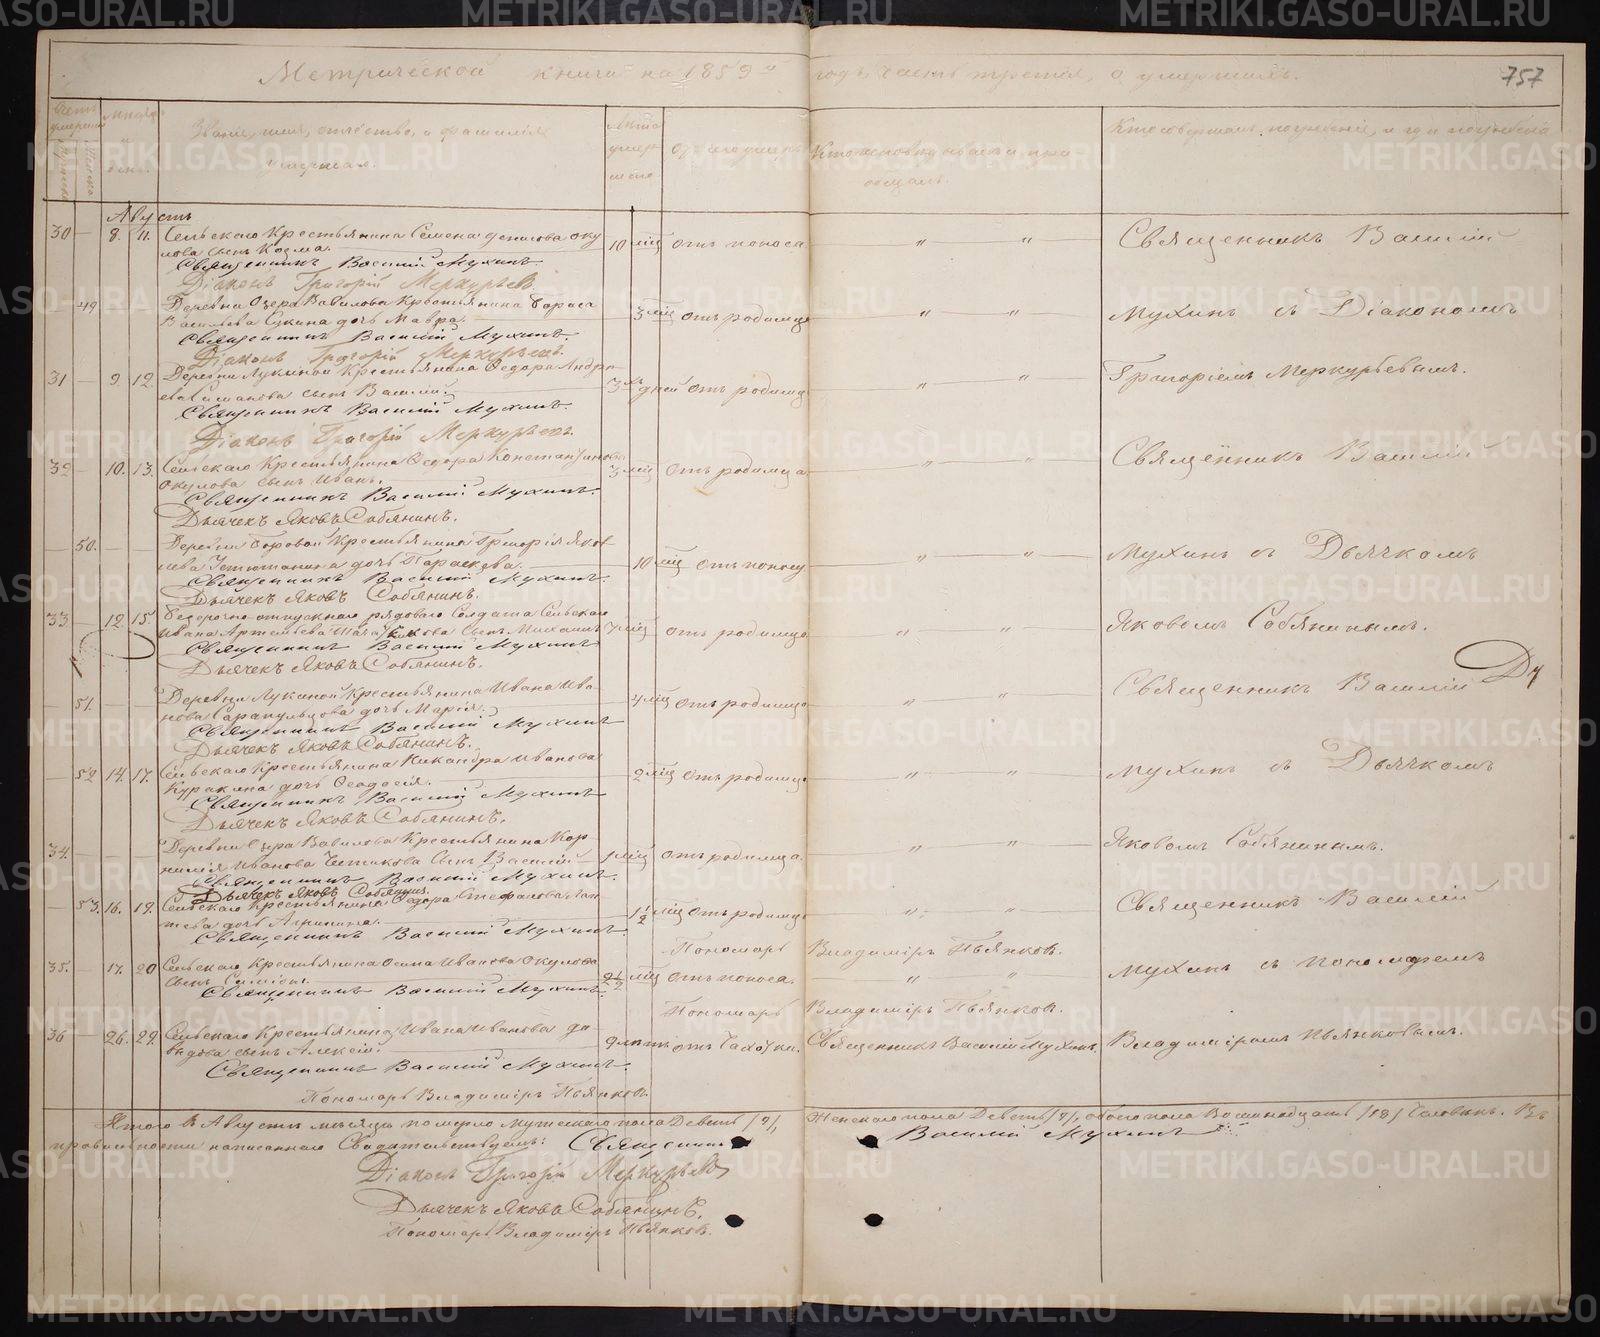 METRIKI.GASO-URAL.RU
Метрической книги на 1859й годъ, часть третія, о умершихъ.
757
Счетъ умершихъ
Мѣсяцъ и день.
Званіе, имя, отчество, и фамилія умершаго.
Лѣта умершаго
Отъ чего умеръ
Кто исповѣдывалъ и пріобщалъ.
Кто совершалъ погребеніе, и гдѣ погребены
Августъ
30 — 8. 11. Сельскаго Крестьянина Семена Денисова Оку
лова сынъ Козма. 10 мѣц отъ поноса " " Священникъ Василій
Священникъ Василій Мухинъ.
Діаконъ Григорій Меркурьевъ.
49 Деревни Озера Вавилова Крестьянина Бориса
Васильева Сукина дочь Мавра. 3 мѣц отъ родимца " " Мухинъ съ Діакономъ
Священникъ Василій Мухинъ.
Діаконъ Григорій Меркурьевъ.
31 — 9. 12. Деревни Лукиной Крестьянина Ѳедора Андре
ева сынъ Василій. 3 дней отъ родимца " " Григоріемъ Меркурьевымъ.
Священникъ Василій Мухинъ.
Діаконъ Григорій Меркурьевъ.
32 — 10. 13. Сельскаго Крестьянина Ѳедора Константинова
Окулова сынъ Иванъ. 3 мѣц отъ родимца " " Священникъ Василій
Священникъ Василій Мухинъ.
Дьячекъ Яковъ Собянинъ.
— 50. — — Деревни Боровой Крестьянина Григорія Яков
лева дочь Параскева. 10 мѣц отъ поносу " " Мухинъ съ Дьячкомъ
Священникъ Василій Мухинъ.
Дьячекъ Яковъ Собянинъ.
33 — 12. 15. отпускнаго рядоваго Солдата Сельскаго
Ивана Артемьева сынъ Михаилъ 7 мѣц отъ родимца " " Яковомъ Собянинымъ.
Священникъ Василій Мухинъ
Дьячекъ Яковъ Собянинъ.
— 51. — — Деревни Лукиной Крестьянина Ивана Ива-
нова Сарапульцова дочь Марія. 4 мѣц отъ родимца " " Священникъ Василій
Священникъ Василій Мухинъ
Дьячекъ Яковъ Собянинъ.
— 52 14. 17. Сельскаго Крестьянина Никандра Иванова
Куракина дочь Ѳеодосія. 2 мѣц отъ родимца " " Мухинъ съ Дьячкомъ
Священникъ Василій Мухинъ
Дьячекъ Яковъ Собянинъ.
34. — — — Деревни Озера Вавилова Крестьянина Кор-
нилія Иванова сынъ Василій 1 мѣц отъ родимца. " " Яковомъ Собянинымъ.
Священникъ Василій Мухинъ.
Дьячекъ Яковъ Собянинъ.
— 53. 16. 19. Сельскаго Крестьянина Ѳедора Стефанова Лап-
тева дочь Агрипина. 1½ мѣц отъ родимца " " Священникъ Василій
Священникъ Василій Мухинъ.
Пономарь Владиміръ Пьянков.
35. — 17. 20 Сельскаго Крестьянина Осипа Иванова Окулова
сынъ Симеонъ. 2½ мѣц отъ поноса. " " Мухинъ съ пономаремъ
Священникъ Василій Мухинъ.
Пономарь Владиміръ Пьянков.
36 — 26. 29. Сельскаго Крестьянина Ивана Иванова Да-
выдова сынъ Алексій. 9 лѣтъ отъ чахотки. Священникъ Василій Мухинъ. Владиміромъ Пьянковымъ.
Священникъ Василій Мухинъ.
Пономарь Владиміръ Пьянков.
Итого в Августѣ мѣсяцѣ померло мужескаго пола Девять /9/, Женскаго пола Девять /9/, обоего пола Восемнадцать /18/ Человѣкъ. Въ
правильности написаннаго Свидѣтельствуемъ: Священникъ Василій Мухинъ
Діаконъ Григорій Меркурьевъ
Дьячекъ Яковъ Собянинъ.
Пономарь Владиміръ Пьянков.